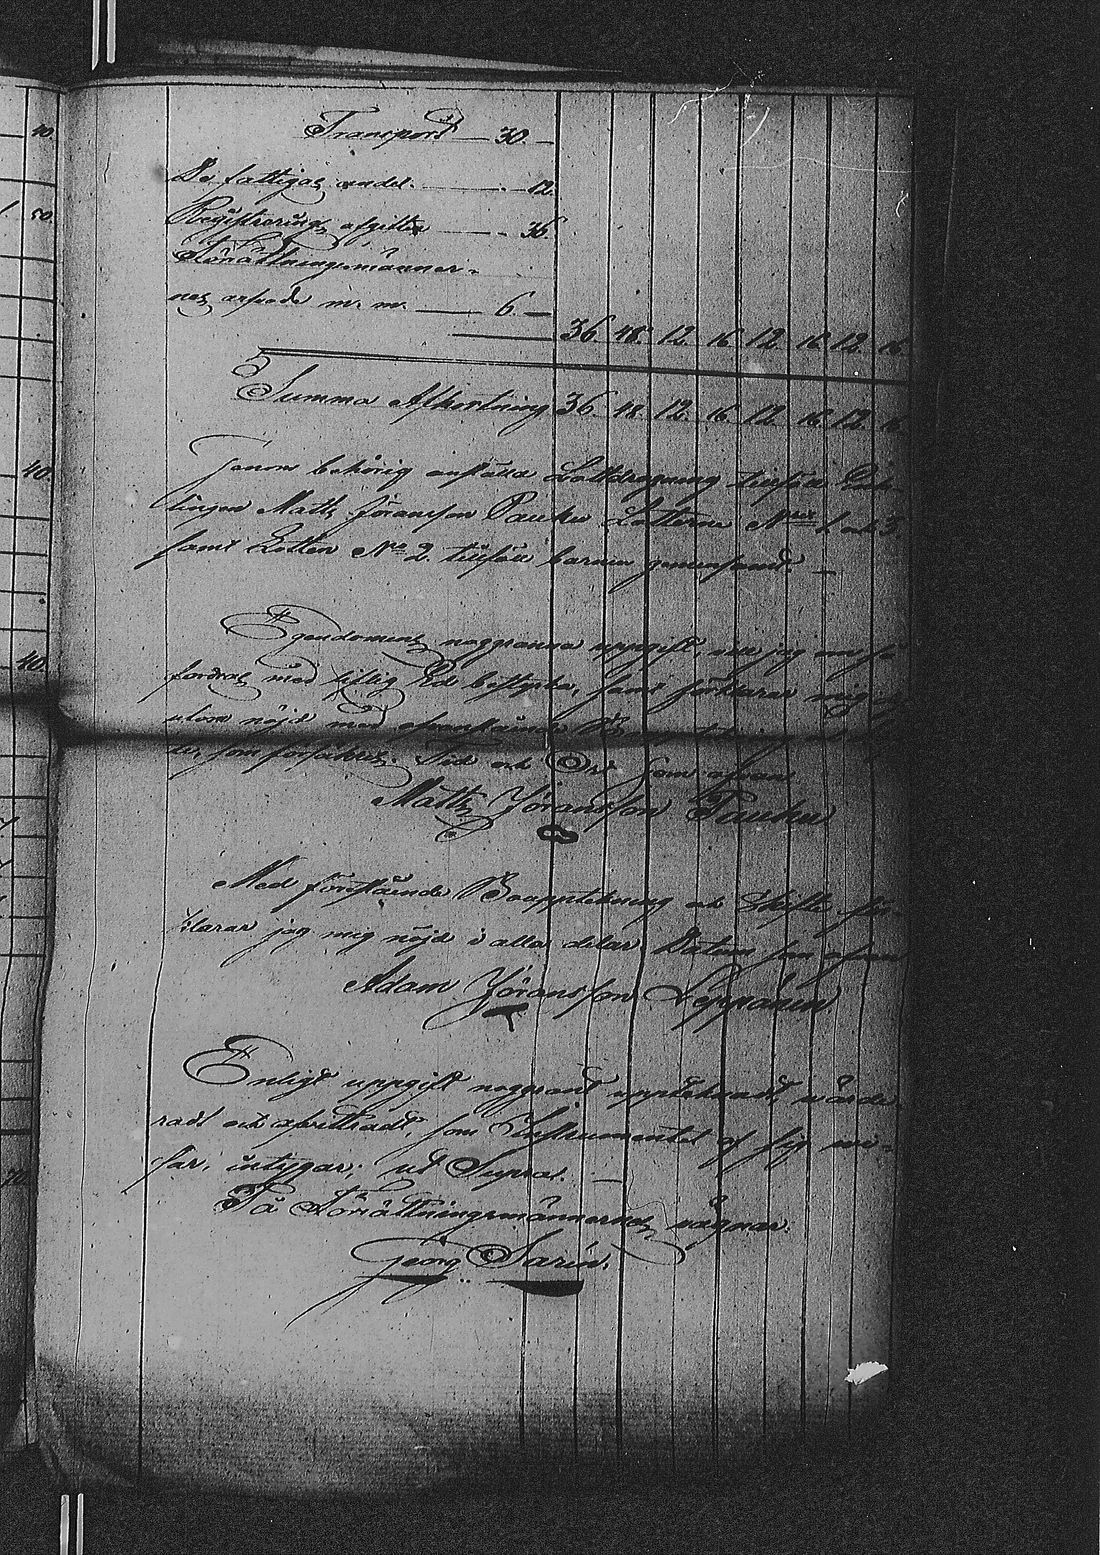 40.
50.
40.
40.
70.
Transport — 30. —
De fattigas andel. — 12.
Registrerings afgifter — 36.
Förrättningsmänner-
nes arfvode m. m. — 6. —
36. 48. 12. 16. 12. 16. 12. 16.
Summa Afkortning 36. 48. 12. 16. 12. 16. 12. 16.
Genom behörig anstäld Lottdragning tillföll
lingen Matts Jöransson Pauku Lotterne N:ris 1. och 3.
samt Lotten N:o 2. tillföll barnen gemensamt. —
Egendomens noggranna uppgift, vill jag om så
fordras med liflig Ed bestyrka, samt förklarar mig
utom nöjd med ofvanstående
som författes. Tid och Ort som ofvan
Matts Jöransson Pauku
Med förestående Bouppteckning och Skifte för-
klarar jag mig nöjd i alla delar. Datum som ofvan
Adam Jöransson Leppänen
Enligt uppgift noggrant upptecknadt, värde-
radt och afvittradt, som Instrumentet af sig vi-
sar, intygar; ut Supra. —
På Förrättningsmännernes vägnar.
Georg Sarin.